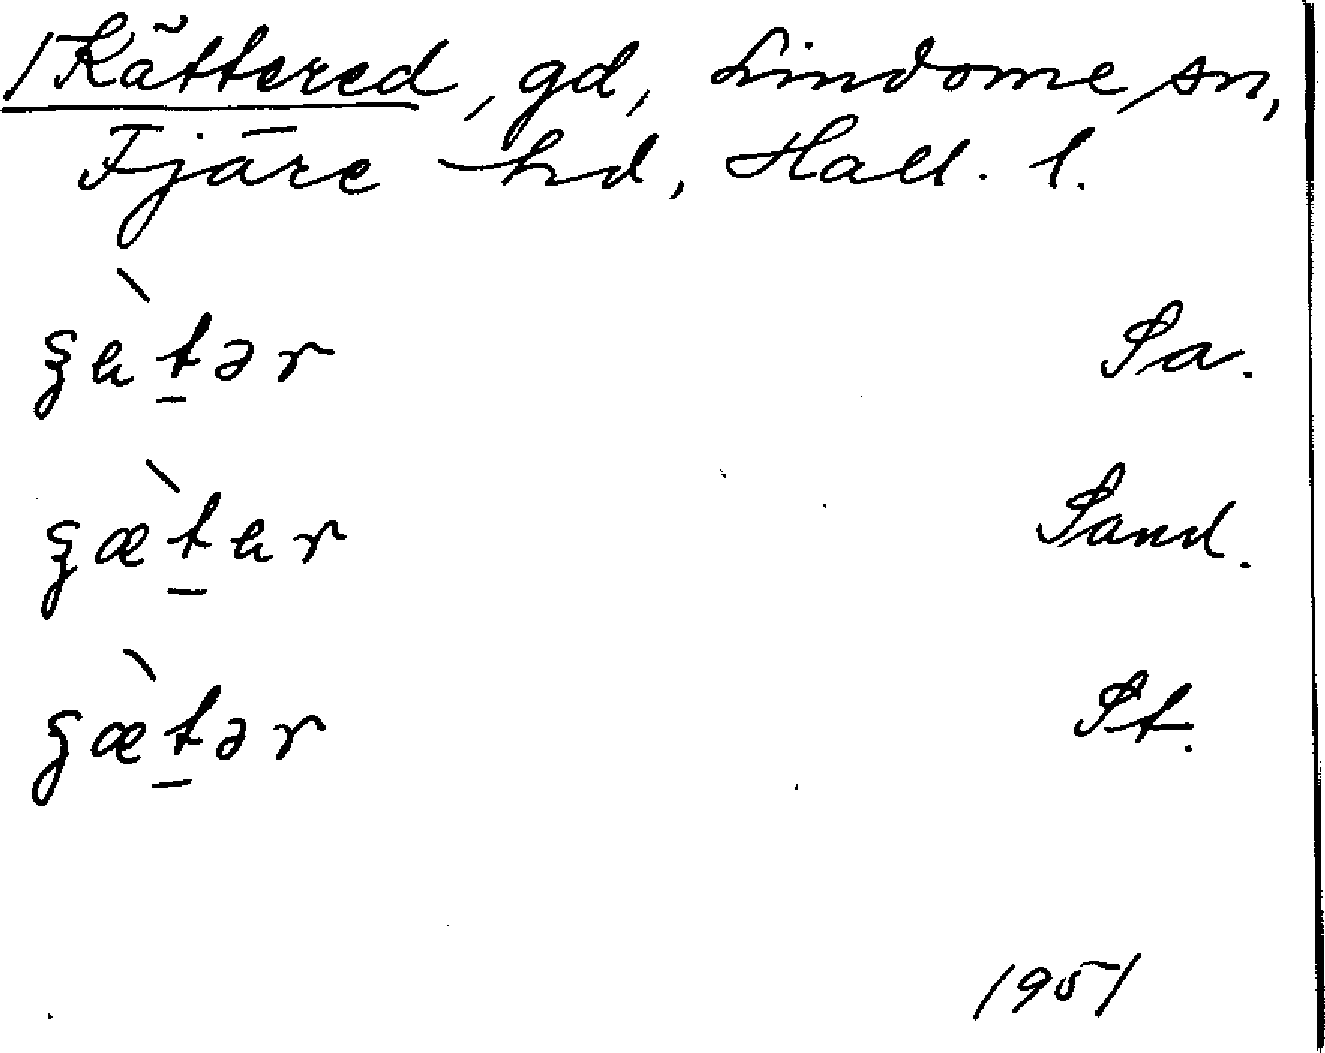 /Kättered, gd, Lindome sn,
Fjäre hd, Hall. l.
ʒɐ̀t̠ər Sa.
ʒæ̀t̠ɐr Sand.
ʒæ̀t̠ər St.
1951